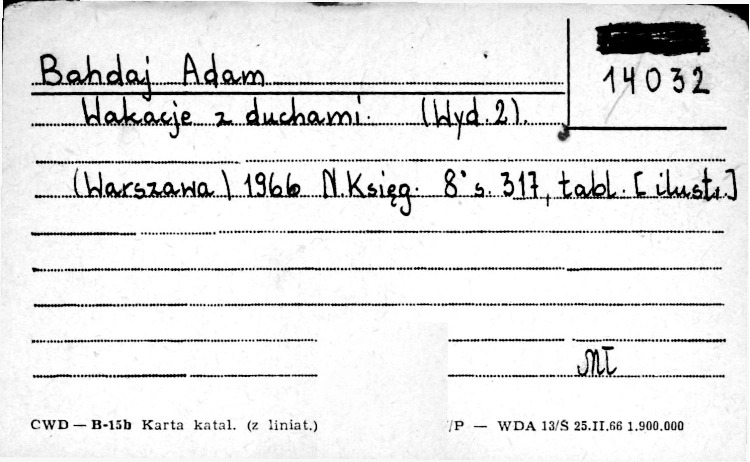 14032
Bahdaj Adam
Wakacje z duchami. (Wyd. 2).
(Warszawa) 1966 N. Księg. 8° s. 317, tabl. [ilustr.]
CWD — B-15b Karta katal. (z liniat.) /P — WDA 13/Ś 25.II.66 1.900.000